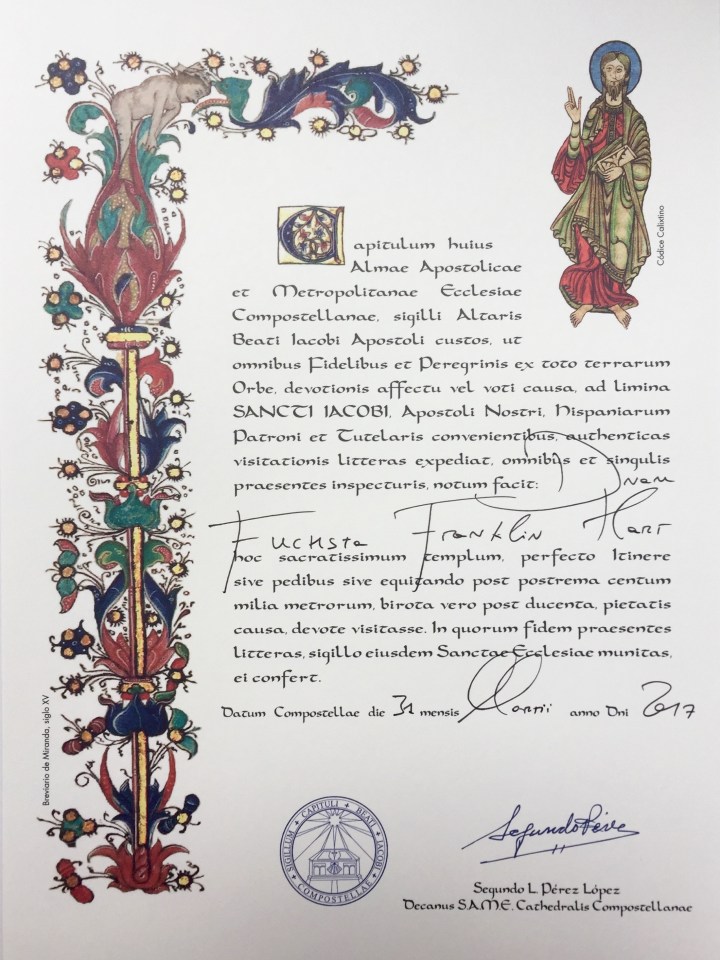 Capitulum huius
Almae Apostolicae
et Metropolitanae Ecclesiae
Compostellanae, sigilli Altaris
Beati Iacobi Apostoli custos, ut
omnibus Fidelibus et Peregrinis ex toto terrarum
Orbe, devotionis affectu vel voti causa, ad limina
SANCTI IACOBI, Apostoli Nostri, Hispaniarum
Patroni et Tutelaris convenientibus, authenticas
visitationis litteras expediat, omnibus et singulis
praesentes inspecturis, notum facit: Dnam
Fuchsta Franklin Hart
hoc sacratissimum templum, perfecto Itinere
sive pedibus sive equitando post postrema centum
milia metrorum, birota vero post ducenta, pietatis
causa, devote visitasse. In quorum fidem praesentes
litteras, sigillo eiusdem Sanctae Ecclesiae munitas,
ei confert.
Datum Compostellae die 31 mensis Martii anno Dni 2017
Códice Calixtino
Breviario de Miranda, siglo XV
SIGILLUM CAPITULI BEATI IACOBI COMPOSTELLAE
Segundo Pérez
Segundo L. Pérez López
Decanus S.A.M.E. Cathedralis Compostellanae